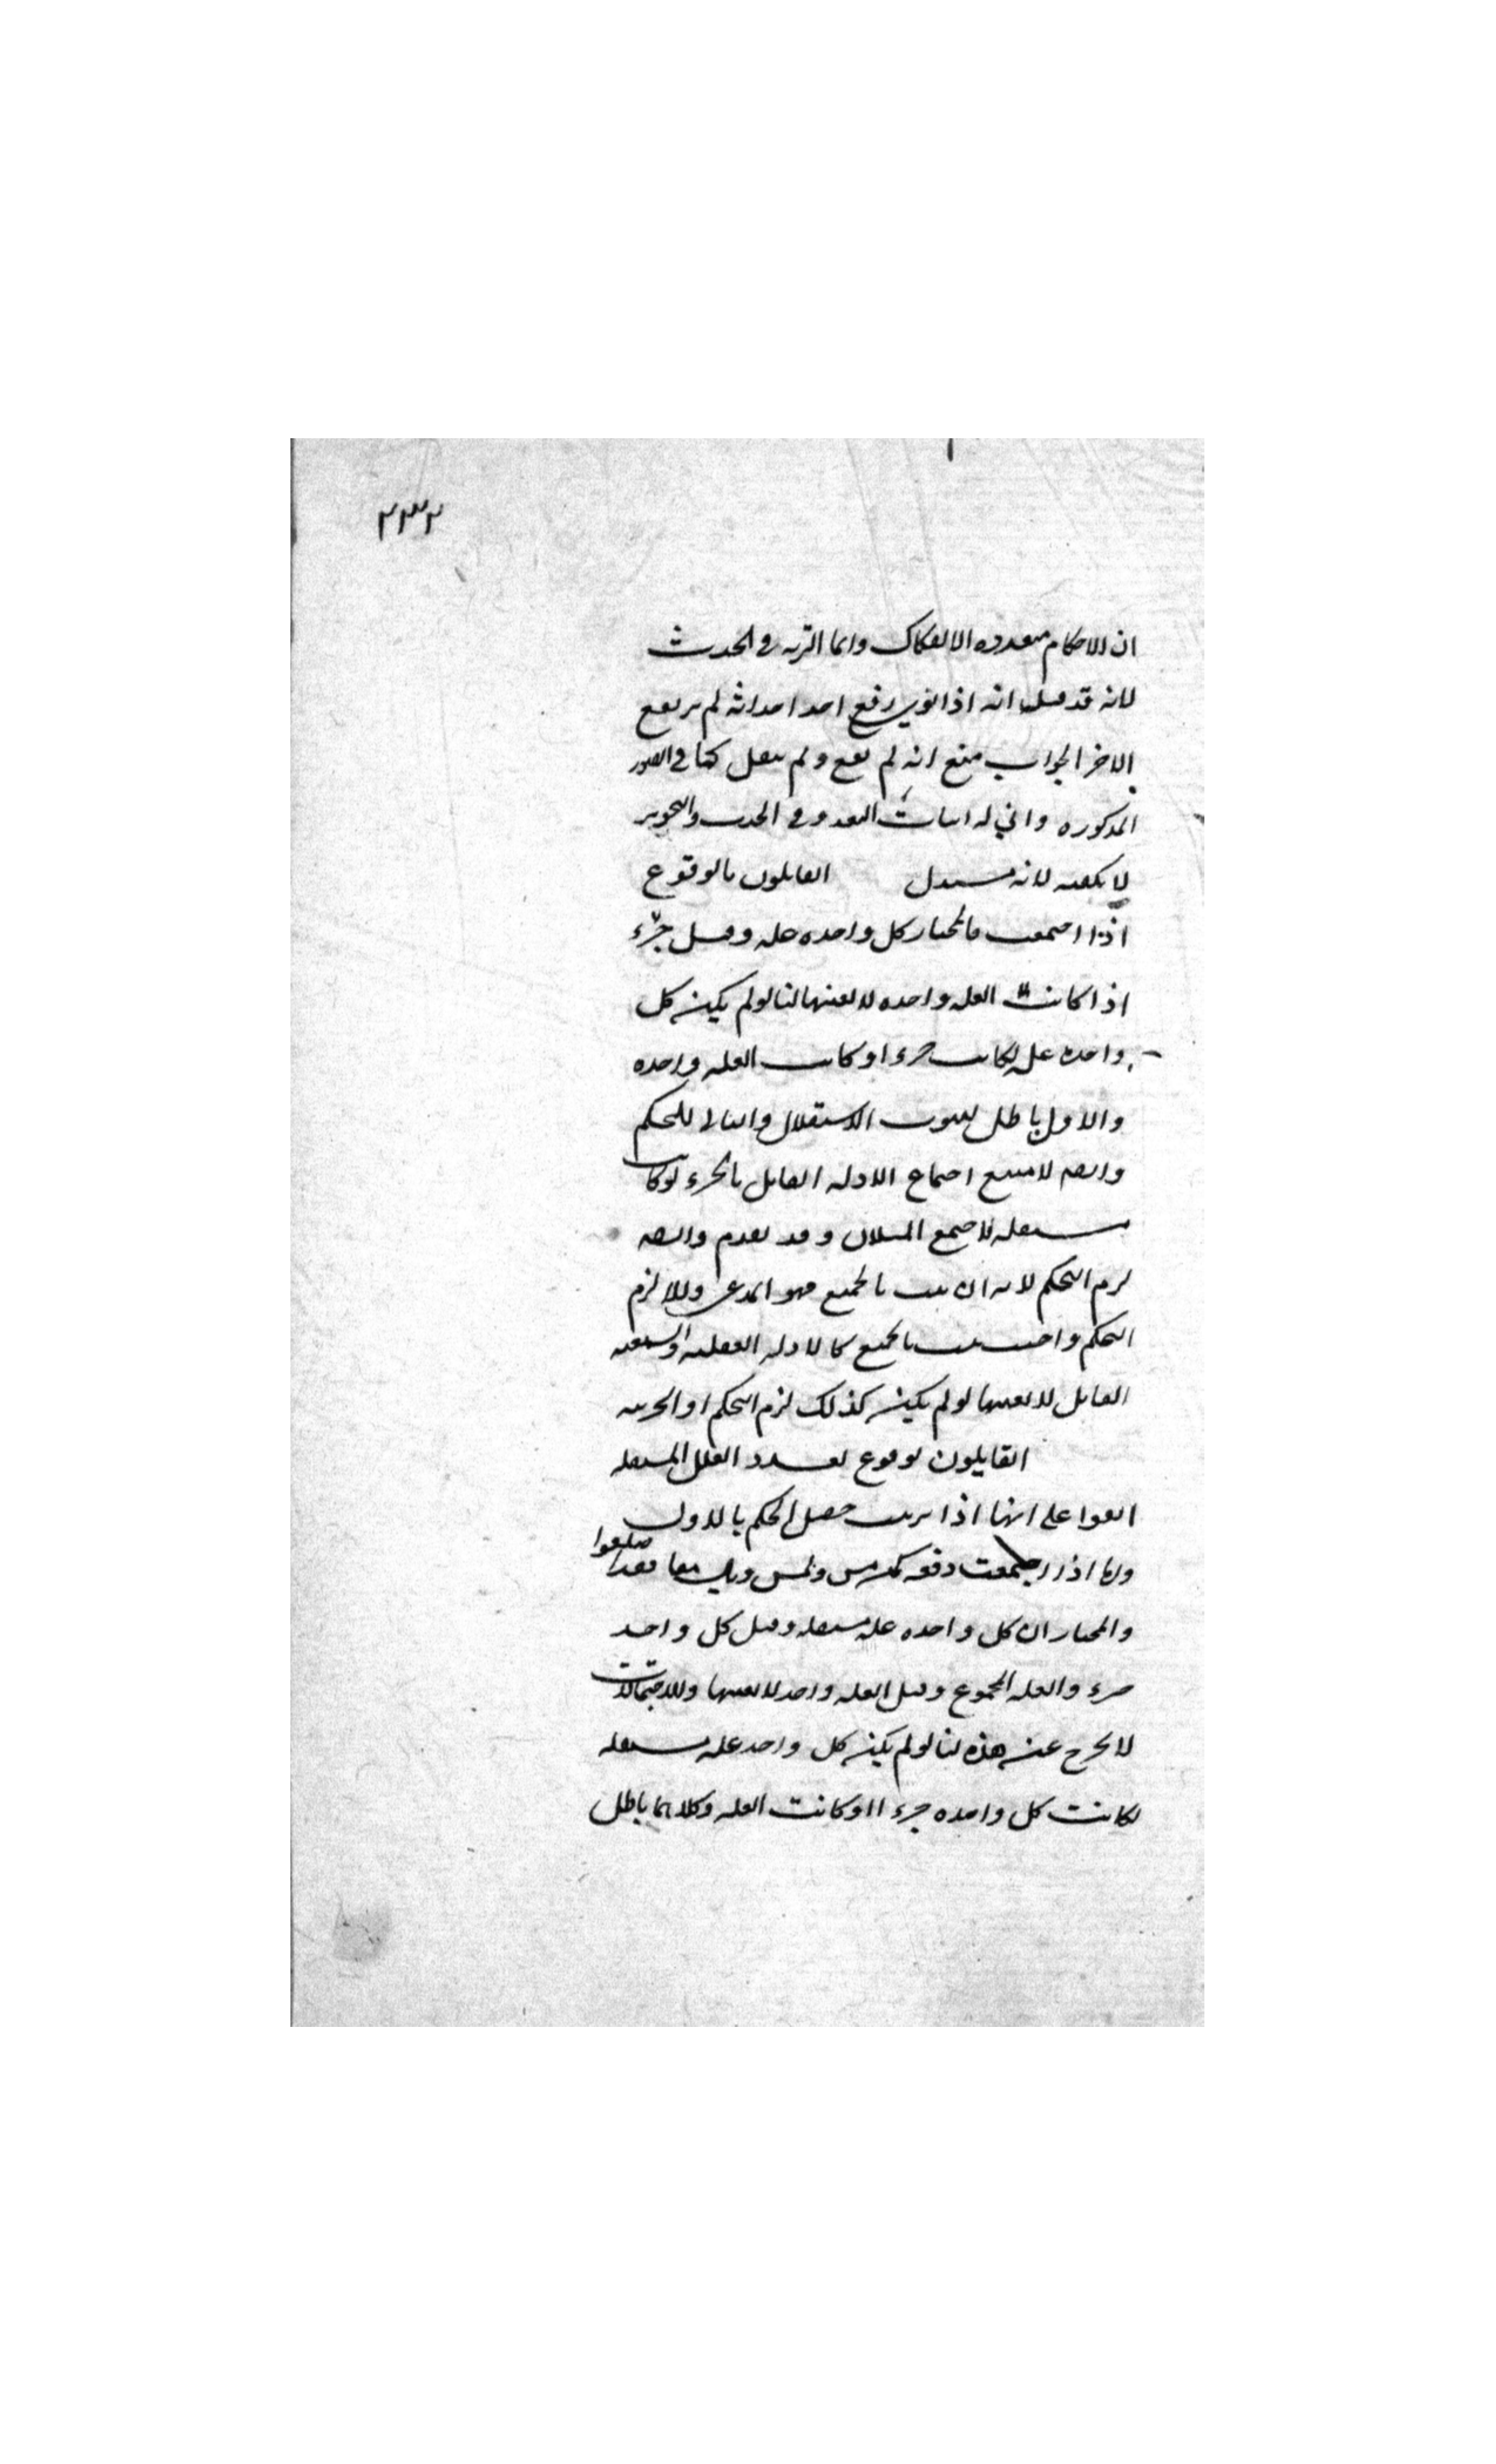 ٢٣٢
ان الاحكام متعدده الا انفكاك وانما التربه في الحدث
لانه قد قيل انه اذا نوى رفع احد احداثه لم يرتفع
الاخر الجواب منع انه لم يقع ولم ينقل كما في الصور
المذكوره واني له اثبات التعدد في الحدث والتجويز
لا يكفيه لانه مستدل القايلون بالوقوع
اذا اجتمعت فالمختار كل واحده عله وقيل جزء
اذا كانت العله واحده لا بعينها لنا لو لم يكن كل
واحده عله لكانت جزءا او كانت العله واحده
والاول باطل لثبوت الاستقلال والثاني للتحكم
وايضا لامتنع اجتماع الادله القايل بالجزء لو كانت
مستقله لاجتمع المثلان وقد تقدم وايضا
لزم التحكم لانه ان ثبت بالجميع فهو المدعى والا لزم
التحكم واجيب ثبت بالجميع كالادله العقليه والسمعيه
القايل لا بعينها لو لم يكن كذلك لزم التحكم او الجزييه
القايلون بوقوع تعدد العلل المستقله
اتفقوا على انها اذا ترتبت حصل الحكم بالاول
واما اذا اجتمعت دفعه كمن مس ولمس وبال معا فقد اختلفوا
والمختار ان كل واحده عله مستقله وقيل كل واحد
جزء والعله المجموع وقيل العله واحد لا بعينها والاحتمالات
لا تخرج عن هذه لنا لو لم يكن كل واحد عله مستقله
لكانت كل واحده جزءا او كانت العله وكلاهما باطل